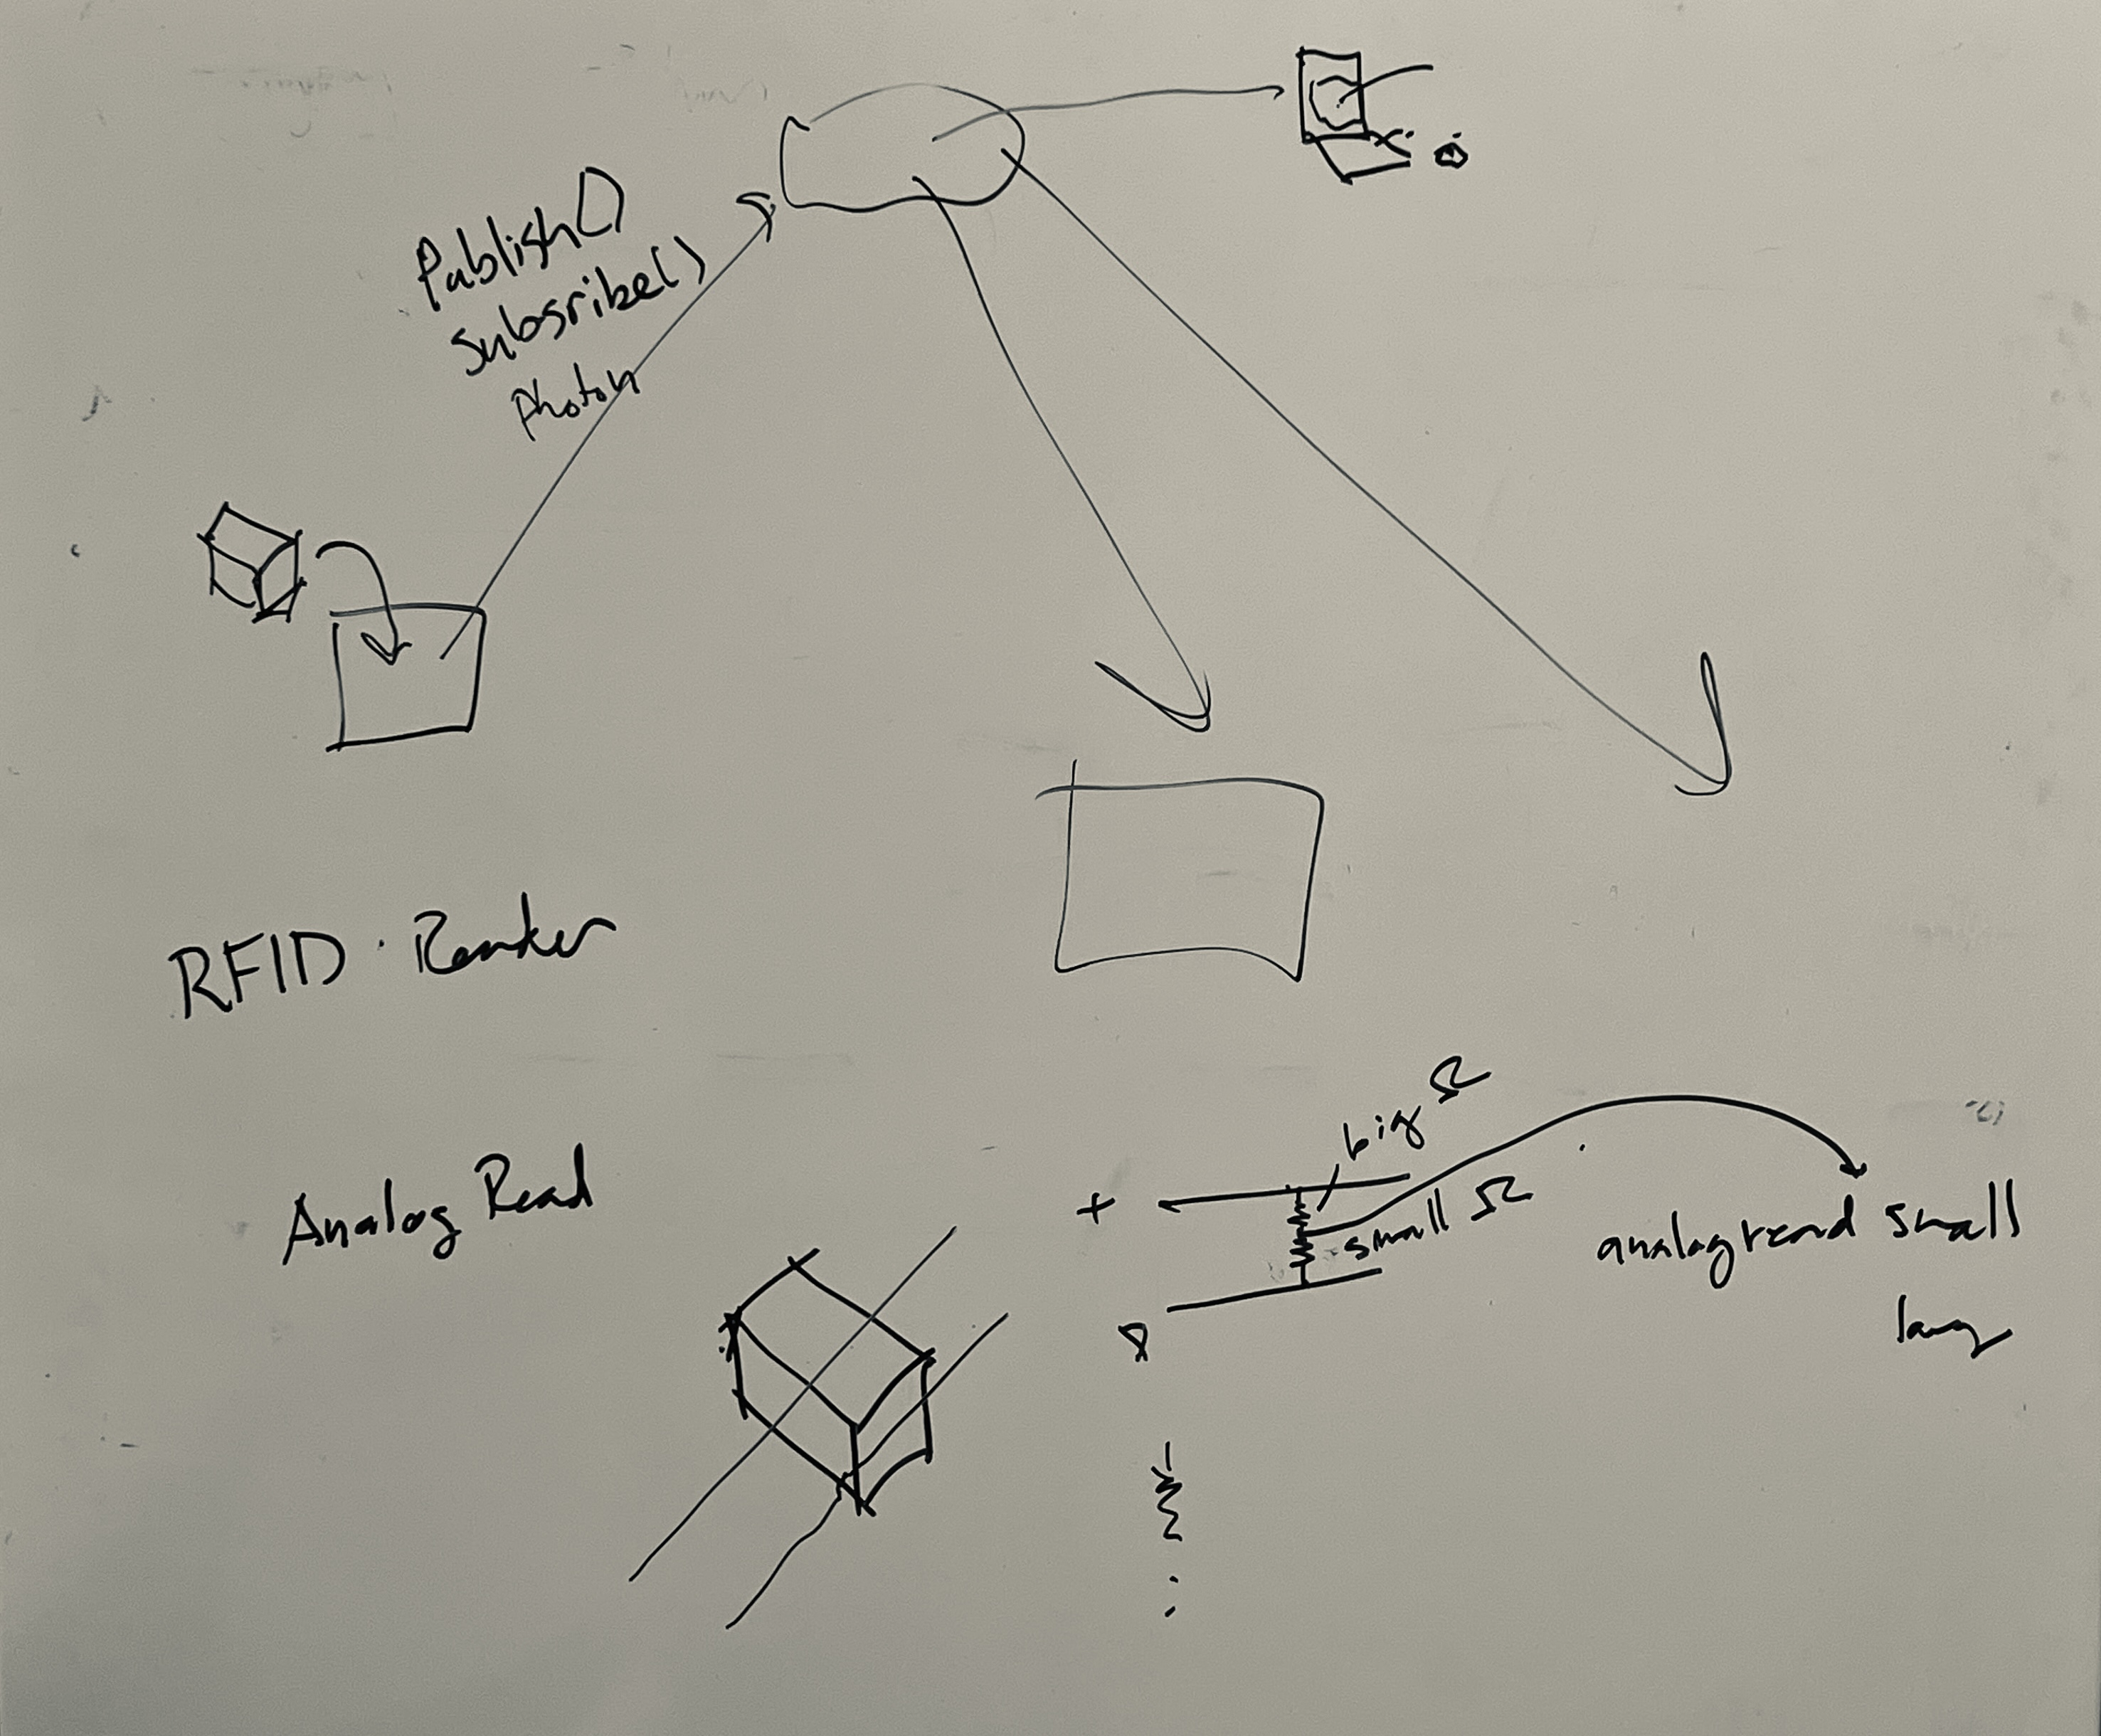 Publish()
Subsribe()
Photon
RFID Reader
Analog Read
big Ω
+
small Ω
analogread small